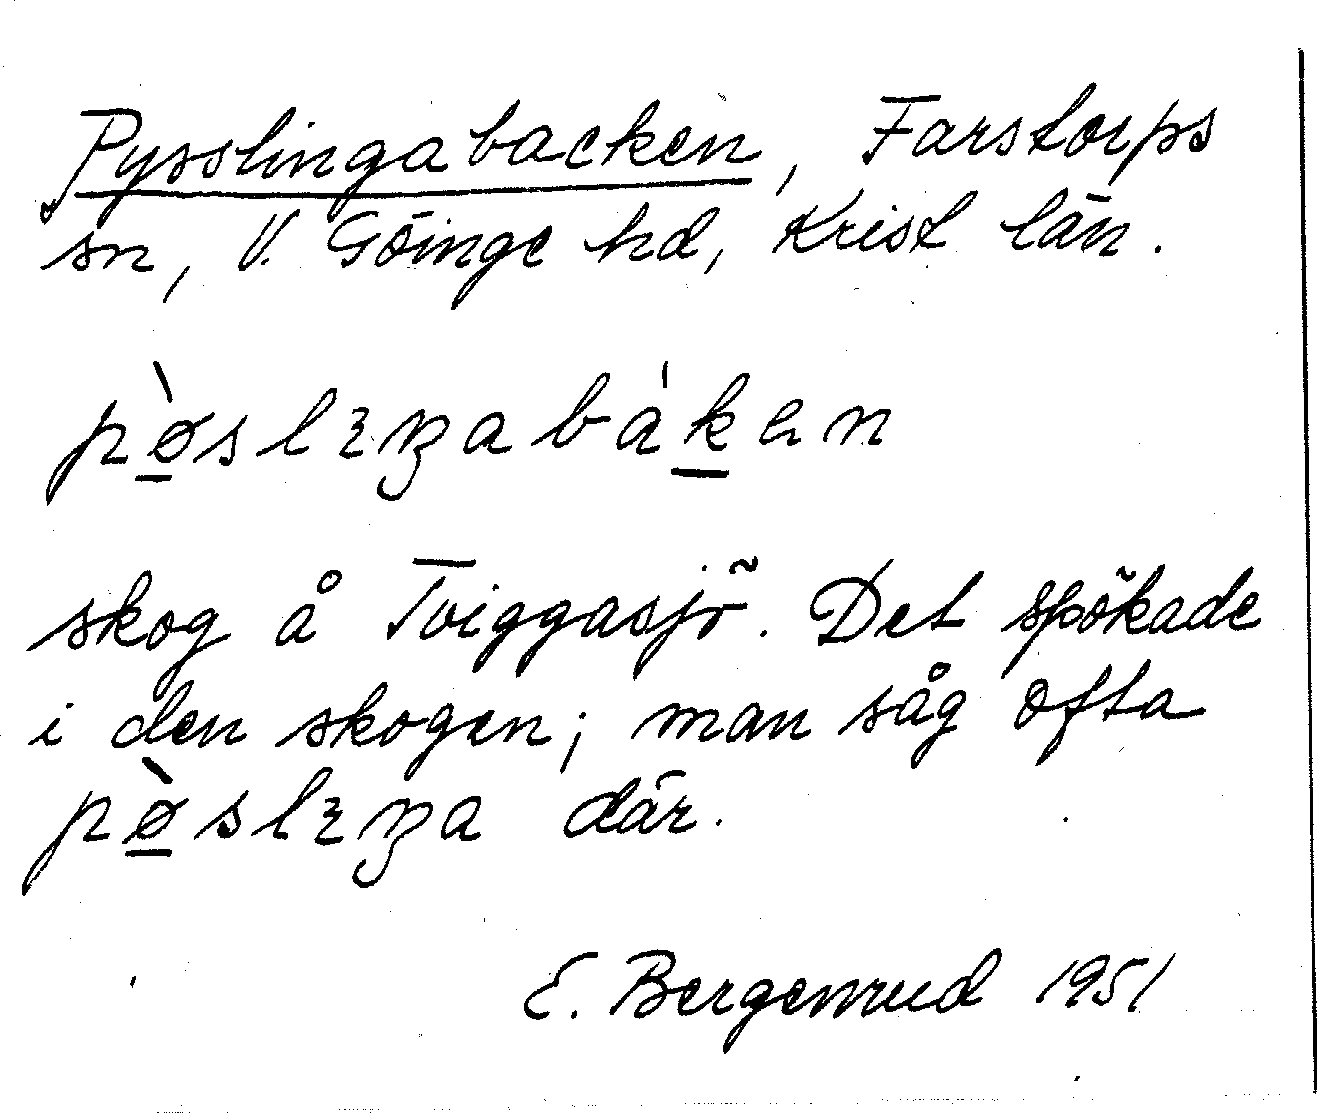 Pysslingabacken, Farstorps
sn, V. Göinge hd, Krist län.
pø̠̀slɪŋabá̍k̠ən
skog å Tviggasjö. Det spökade
i den skogen; man såg ofta
pø̠̀slɪŋa där.
E. Bergenrud 1951